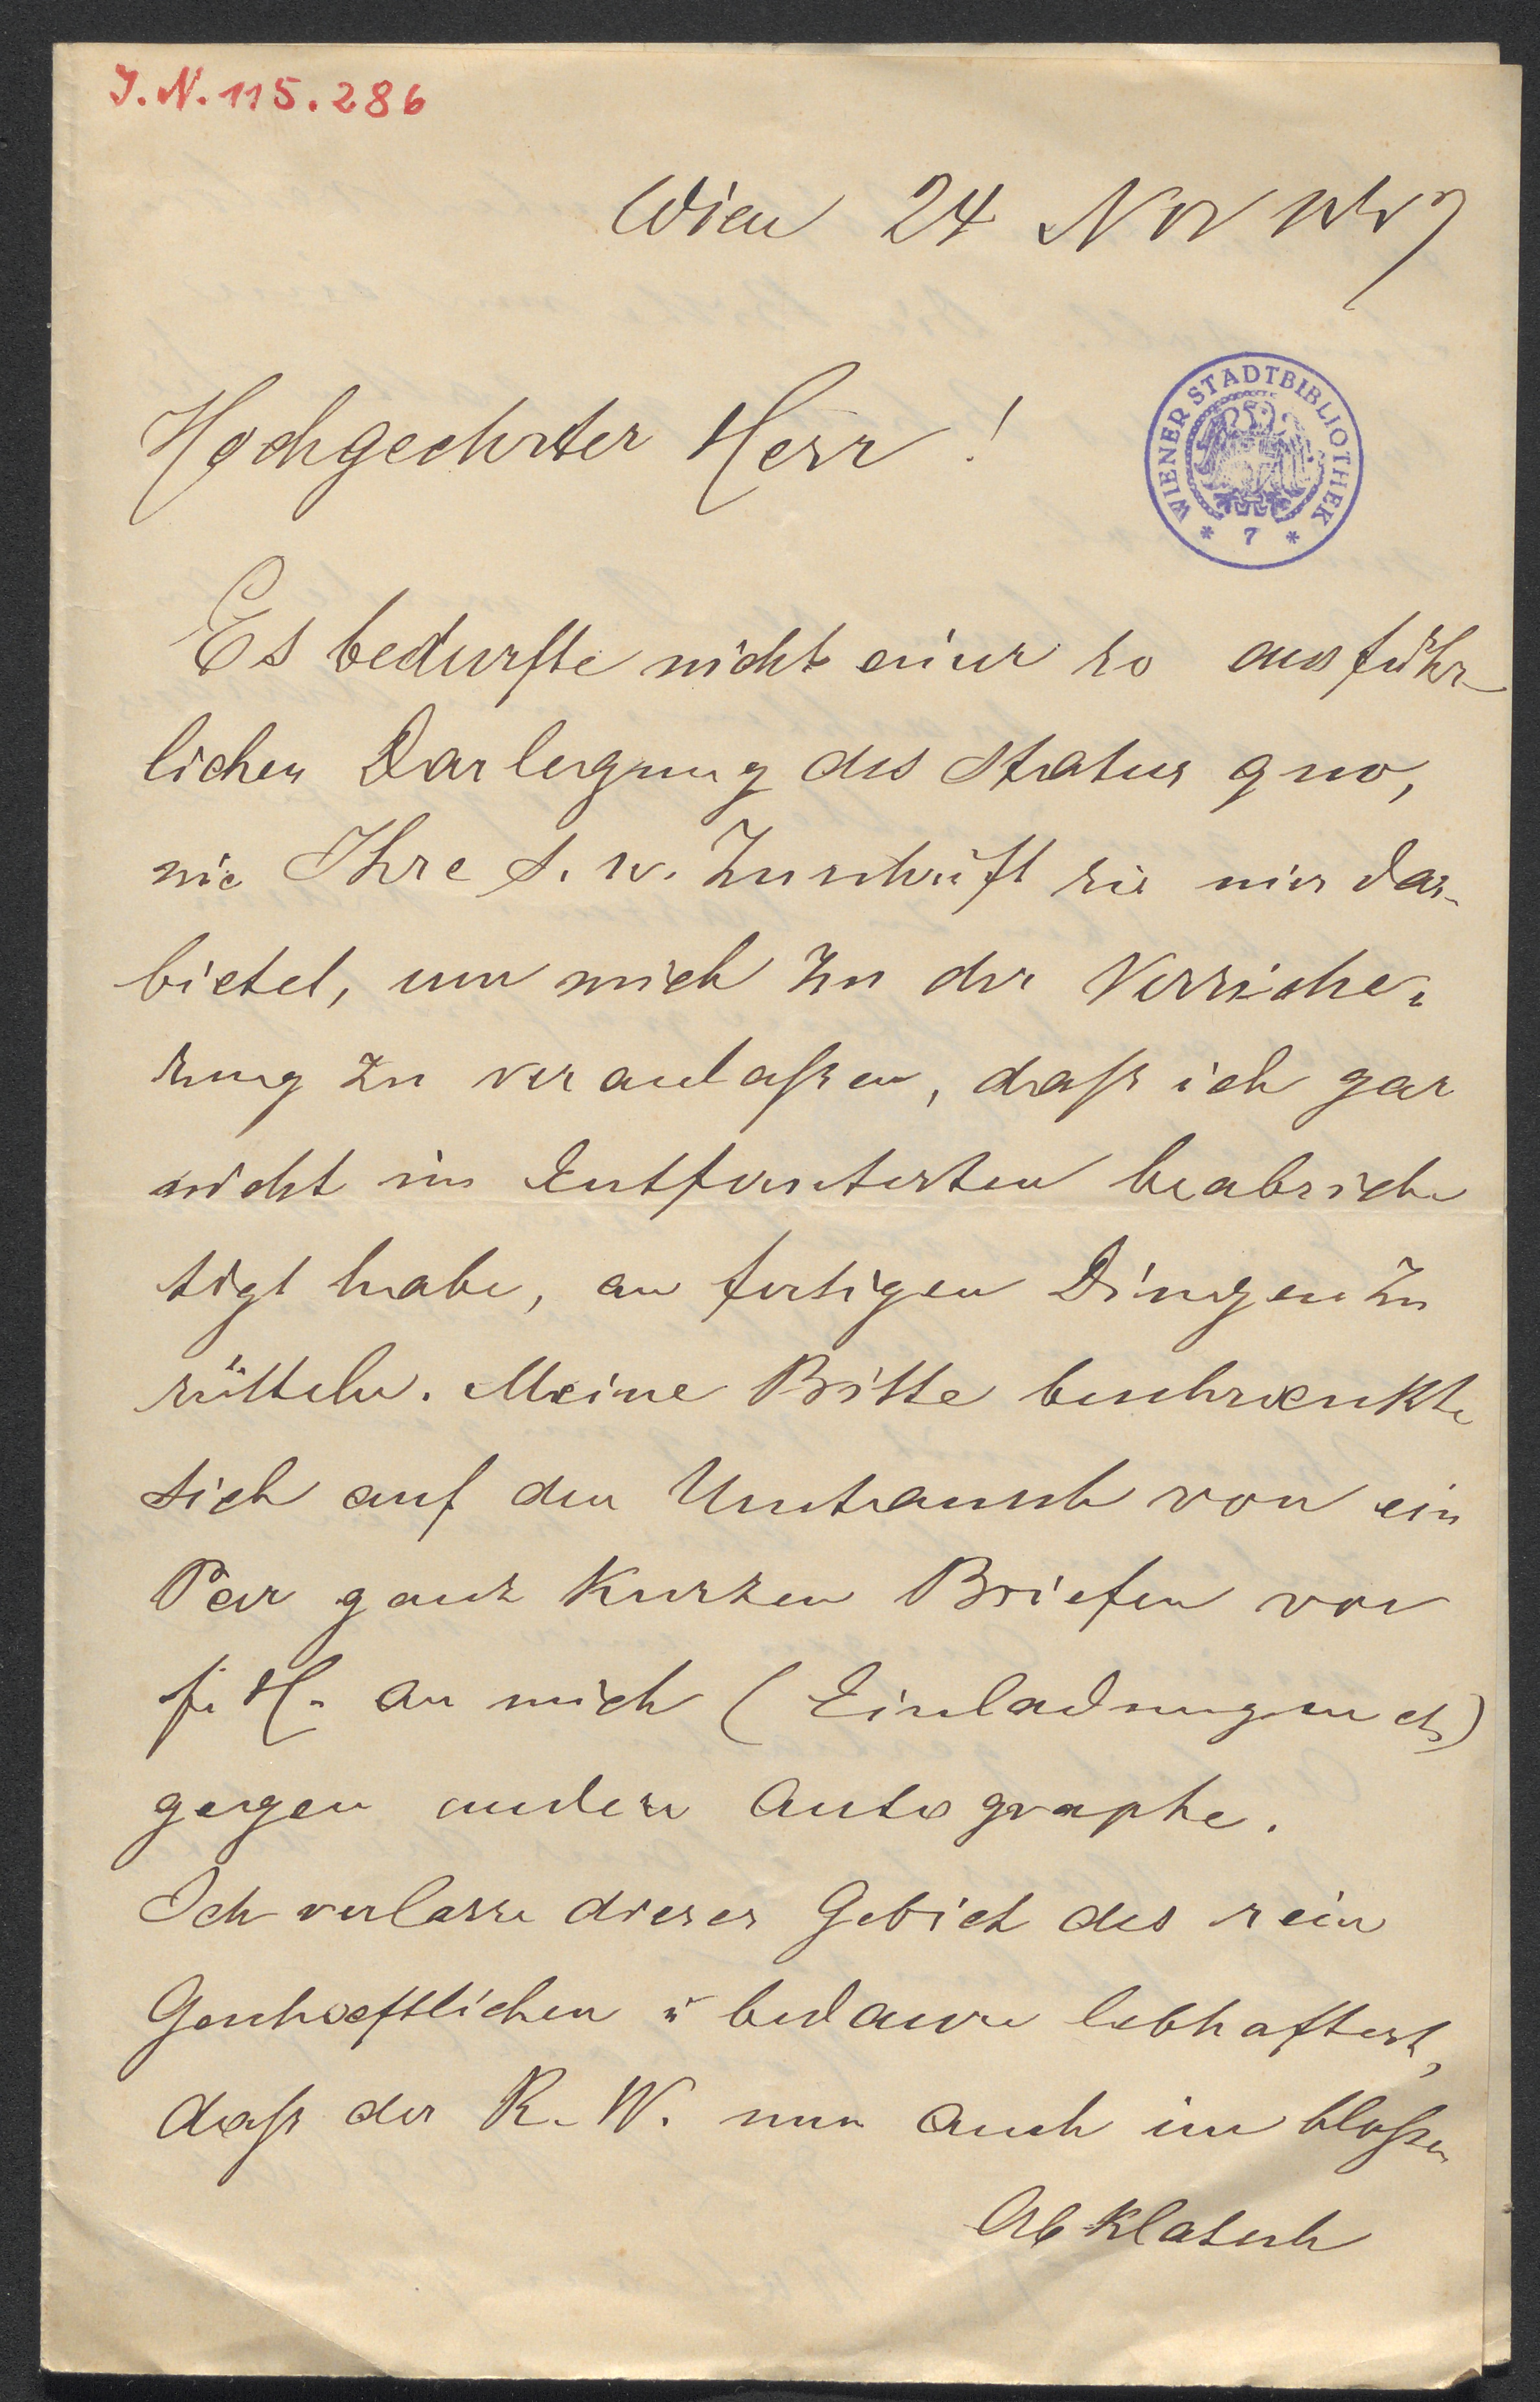 J.N. 115.286
Wien 24 Nov 1887
Hochgeehrter Herr!
WIENER STADTBIBLIOTHEK
* 7 *
Es bedurfte nicht einer so ausführ-
lichen Darlegung des Status quo,
wie Ihre s. w. Zuschrift sie mir dar-
bietet, um mich zu der Versiche-
rung zu veranlaßen, daß ich gar
nicht im Entferntesten beabsich-
tigt habe, an fertigen Dingen zu
rütteln. Meine Bitte beschraenkte
sich auf den Umtausch von ein
Par ganz kurzen Briefen von
F. H. an mich (Einladungen etc)
gegen andere Autographe.
Ich verlasse dieses Gebiet des rein
Geschaeftlichen u bedaure lebhaftest,
daß der R. W. nun auch im bloßen
Abklatsch